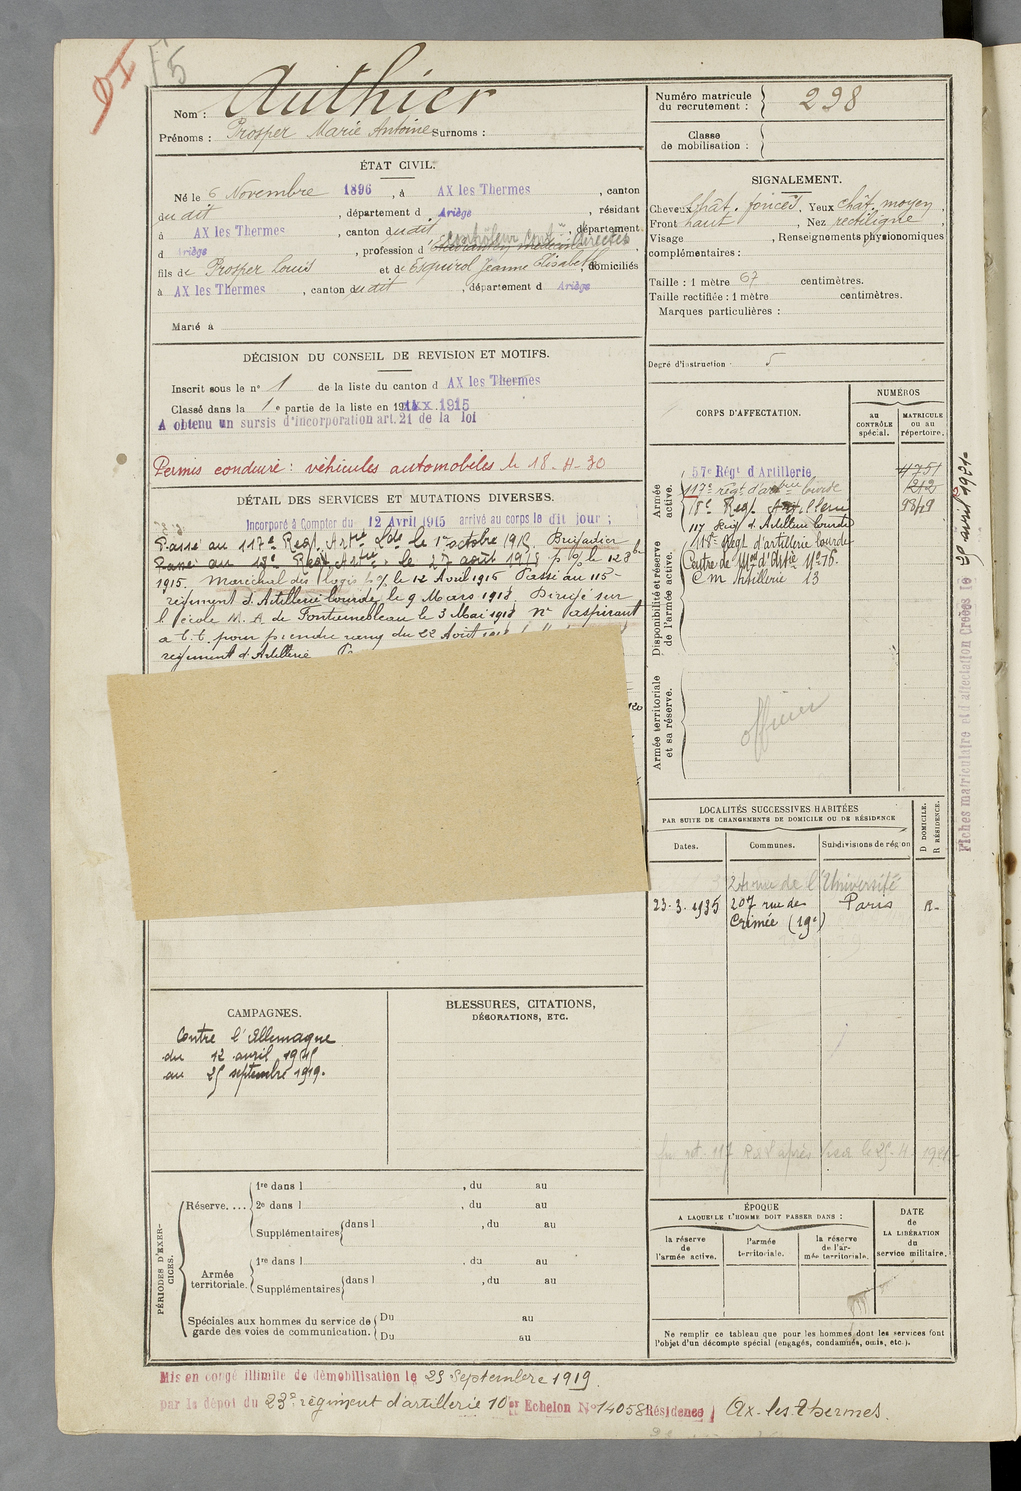 F5
Nom : Authier
Prénoms : Prosper Marie Antoine Surnoms :
Numéro matricule du recrutement : 298
Classe de mobilisation :
ÉTAT CIVIL.
Né le 6 Novembre 1896, à AX les Thermes, canton
du dit, département d Ariège, résidant
à AX les Thermes, canton du dit, département
d Ariège, profession d' contrôleur cont. directes
fils de Prosper Louis et de Esquirol Jeanne Elisabeth, domiciliés
à AX les Thermes, canton du dit, département d Ariège
Marié à
SIGNALEMENT.
Cheveux chât. foncés, Yeux chât. moyen
Front haut, Nez rectiligne
Visage , Renseignements physionomiques
complémentaires :
Taille : 1 mètre 67 centimètres.
Taille rectifiée : 1 mètre centimètres.
Marques particulières :
Degré d'instruction : 5
DÉCISION DU CONSEIL DE REVISION ET MOTIFS.
Inscrit sous le n° 1 de la liste du canton d AX les Thermes
Classé dans la 1e partie de la liste en 1915
A obtenu un sursis d'incorporation art. 21 de la loi
Permis conduire : véhicules automobiles le 18-4-30
DÉTAIL DES SERVICES ET MUTATIONS DIVERSES.
Incorporé à Compter du 12 Avril 1915 arrivé au corps le dit jour ;
Passé au 117e Regt Artie Lde le 1er octobre 1915. Brigadier
Passé au 18e Regt Artie le 27 août 1915
1915. Maréchal des logis le 12 Avril 1916 Passé au 115e
régiment d'Artillerie lourde le 9 Mars 1918. Dirigé sur
l'école M. A. de Fontainebleau le 3 Mai 1918 Né aspirant
à t.t. pour prendre rang du 22 Août
régiment d'Artillerie
CORPS D'AFFECTATION.
NUMÉROS
au CONTRÔLE spécial.
MATRICULE ou au répertoire.
Armée active.
57e Régt d'Artillerie 4751
117e régt d'artie lourde 212
18e Regt Artillerie
117 Régt d'Artillerie lourde
Disponibilité et réserve de l'armée active.
118e Régt d'artillerie lourde
Centre de Mon d'Artie N° 76.
C m Artillerie 13
Armée territoriale et sa réserve.
officier
Fiches matriculaire et d'affectation Créées le 25 avril 1921
LOCALITÉS SUCCESSIVES HABITÉES
PAR SUITE DE CHANGEMENTS DE DOMICILE OU DE RÉSIDENCE
D DOMICILE.
R RÉSIDENCE.
Dates. Communes. Subdivisions de région
rue de l'Université
23-3-1935 207 rue de Crimée (19e) Paris R-
CAMPAGNES.
Contre l'Allemagne
du 12 avril 1915
au 25 septembre 1919.
BLESSURES, CITATIONS,
DÉCORATIONS, ETC.
PÉRIODES D'EXERCICES.
Réserve.... 1re dans l , du au
2e dans l , du au
Supplémentaires dans l , du au
Armée territoriale. 1re dans l , du au
Supplémentaires dans l , du au
Spéciales aux hommes du service de garde des voies de communication. Du au
Du au
ÉPOQUE
A LAQUELLE L'HOMME DOIT PASSER DANS :
la réserve de l'armée active.
l'armée territoriale.
la réserve de l'armée territoriale.
DATE de LA LIBÉRATION du service militaire.
Ne remplir ce tableau que pour les hommes dont les services font
l'objet d'un décompte spécial (engagés, condamnés, omis, etc.).
Mis en congé illimité de démobilisation le 25 Septembre 1919.
par le dépôt du 23e régiment d'artillerie 10er Echelon N° 14058 Résidence Ax-les-Thermes.